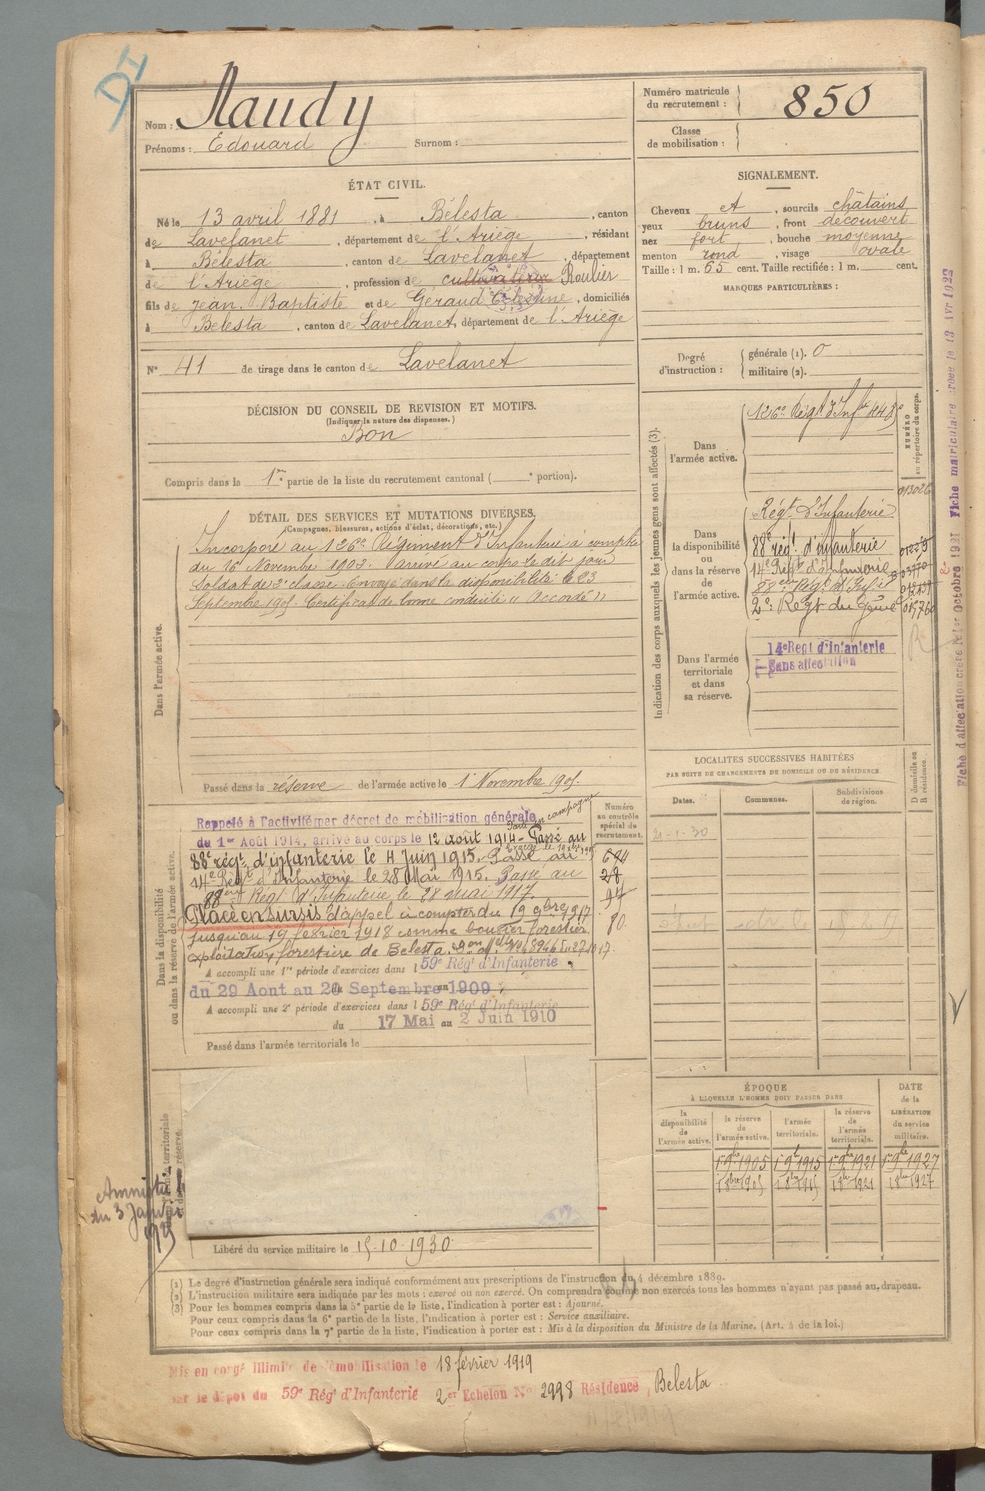 Nom : Naudy
Prénoms : Edouard Surnom :
Numéro matricule du recrutement : 850
Classe de mobilisation :
ÉTAT CIVIL.
Né le 13 avril 1881, à Bélesta, canton
de Lavelanet, département de l'Ariège, résidant
à Bélesta, canton de Lavelanet, département
de l'Ariège, profession de cultivateur Roulier
fils de Jean Baptiste et de Géraud Célestine, domiciliés
à Bélesta, canton de Lavelanet, département de l'Ariège
N° 41 de tirage dans le canton de Lavelanet
DÉCISION DU CONSEIL DE REVISION ET MOTIFS.
(Indiquer la nature des dispenses.)
Bon
Compris dans la 1re partie de la liste du recrutement cantonal ( e portion).
SIGNALEMENT.
Cheveux et, sourcils châtains
yeux bruns, front découvert
nez fort, bouche moyenne
menton rond, visage ovale
Taille : 1 m. 65 cent. Taille rectifiée : 1 m. cent.
MARQUES PARTICULIÈRES :
Degré d'instruction : générale (1). 0
militaire (2).
DÉTAIL DES SERVICES ET MUTATIONS DIVERSES.
(Campagnes, blessures, actions d'éclat, décorations, etc.)
Dans l'armée active.
Incorporé au 126e Régiment d'Infanterie à compter
du 16 Novembre 1902. Arrivé au corps le dit jour
Soldat de 2e classe. Envoyé dans la disponibilité le 23
Septembre 1905. Certificat de bonne conduite " Accordé "
Passé dans la réserve de l'armée active le 1 Novembre 1905.
Indication des corps auxquels les jeunes gens sont affectés (3).
NUMÉRO au répertoire du corps.
Dans l'armée active.
126e Régt d'Infie
Dans la disponibilité ou dans la réserve de l'armée active.
Régt d'Infanterie
88e régt d'infanterie
14e Régt d'Infanterie
88ème Régt d'Infie
2e Régt du Génie
Dans l'armée territoriale et dans sa réserve.
14e Regt d'Infanterie
Sans affectation
Dans la disponibilité ou dans la réserve de l'armée active.
Numéro au contrôle spécial du recrutement.
Rappelé à l'activité par décret de mobilisation générale
du 1er Août 1914, arrivé au corps le 12 août 1914 - Passé au
88e régt d'infanterie le 4 Juin 1915. Passé au
14e Régt d'Infanterie le 28 Mai 1915. Passé au
88ème Régt d'Infanterie le 28 mai 1917.
Placé en sursis d'appel à compter du 19 9bre 1917
jusqu'au 19 février 1918 comme bouvier forestier
exploitation forestière de Belesta
80
A accompli une 1re période d'exercices dans l 59e Rég' d'Infanterie
du 29 Aout au 20 Septembre 1909
A accompli une 2e période d'exercices dans l 59e Rég' d'Infanterie
du 17 Mai au 2 Juin 1910
Passé dans l'armée territoriale le
LOCALITÉS SUCCESSIVES HABITÉES
PAR SUITE DE CHANGEMENTS DE DOMICILE OU DE RÉSIDENCE.
Dates. Communes. Subdivisions de région. D domicile ou R résidence.
2-1-30
ÉPOQUE
À LAQUELLE L'HOMME DOIT PASSER DANS
DATE de la LIBÉRATION du service militaire.
la disponibilité de l'armée active. la réserve de l'armée active. l'armée territoriale. la réserve de l'armée territoriale.
1 9bre 1905 1 9bre 1915 1 9bre 1921 1 9bre 1927
Amnistié
du 3 Janvier
Libéré du service militaire le 15.10.1930
(1) Le degré d'instruction générale sera indiqué conformément aux prescriptions de l'instruction du 4 décembre 1889.
(2) L'instruction militaire sera indiquée par les mots : exercé ou non exercé. On comprendra comme non exercés tous les hommes n'ayant pas passé au drapeau.
(3) Pour les hommes compris dans la 5e partie de la liste, l'indication à porter est : Ajourné.
Pour ceux compris dans la 6e partie de la liste, l'indication à porter est : Service auxiliaire.
Pour ceux compris dans la 7e partie de la liste, l'indication à porter est : Mis à la disposition du Ministre de la Marine. (Art. 4 de la loi.)
Mis en congé illimité de démobilisation le 18 février 1919
par le dépôt du 59e Rég' d'Infanterie 2er Echelon No 2998 Résidence, Belesta
Fiche d'affectation créée le 1er Octobre 1931 Fiche matriculaire créée le 13 Avr 1922